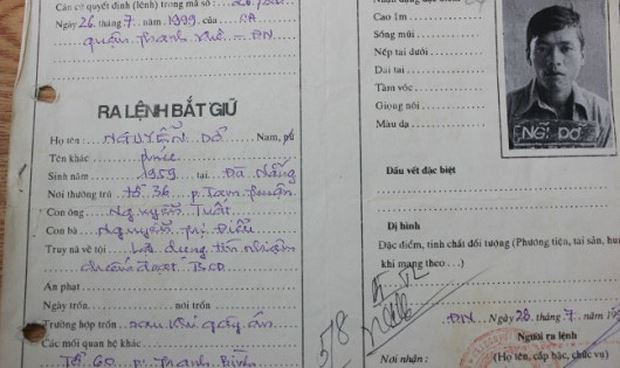 Căn cứ quyết định (lệnh) trong mã số :
Ngày 26 tháng 7 năm 1999 của CA
quận Thanh Khê - ĐN
RA LỆNH BẮT GIỮ
Họ tên : NGUYỄN DƠ Nam, nữ
Tên khác
Sinh năm 1959 tại Đà Nẵng
Nơi thường trú tổ 36 p. Tam thuận
Con ông Nguyễn Tuất
Con bà Nguyễn thị Diễu
Truy nã về tội Lạm dụng tín nhiệm
chiếm đoạt TSCD
Án phạt
Ngày trốn nơi trốn
Trường hợp trốn sau khi gây án
Các mối quan hệ khác
Tổ 60 p. Thanh Bình
Cao 1m
Sống mũi
Nếp tai dưới
Dái tai
Tầm vóc
Giọng nói
Màu da
NG~ DƠ
Dấu vết đặc biệt
Dị hình
Đặc điểm, tính chất đối tượng (Phương tiện, tài sản,
khi mang theo...)
5/8
ĐN Ngày 28 tháng 7
Người ra lệnh
Nơi nhận : (Họ tên, cấp bậc, chức vụ)